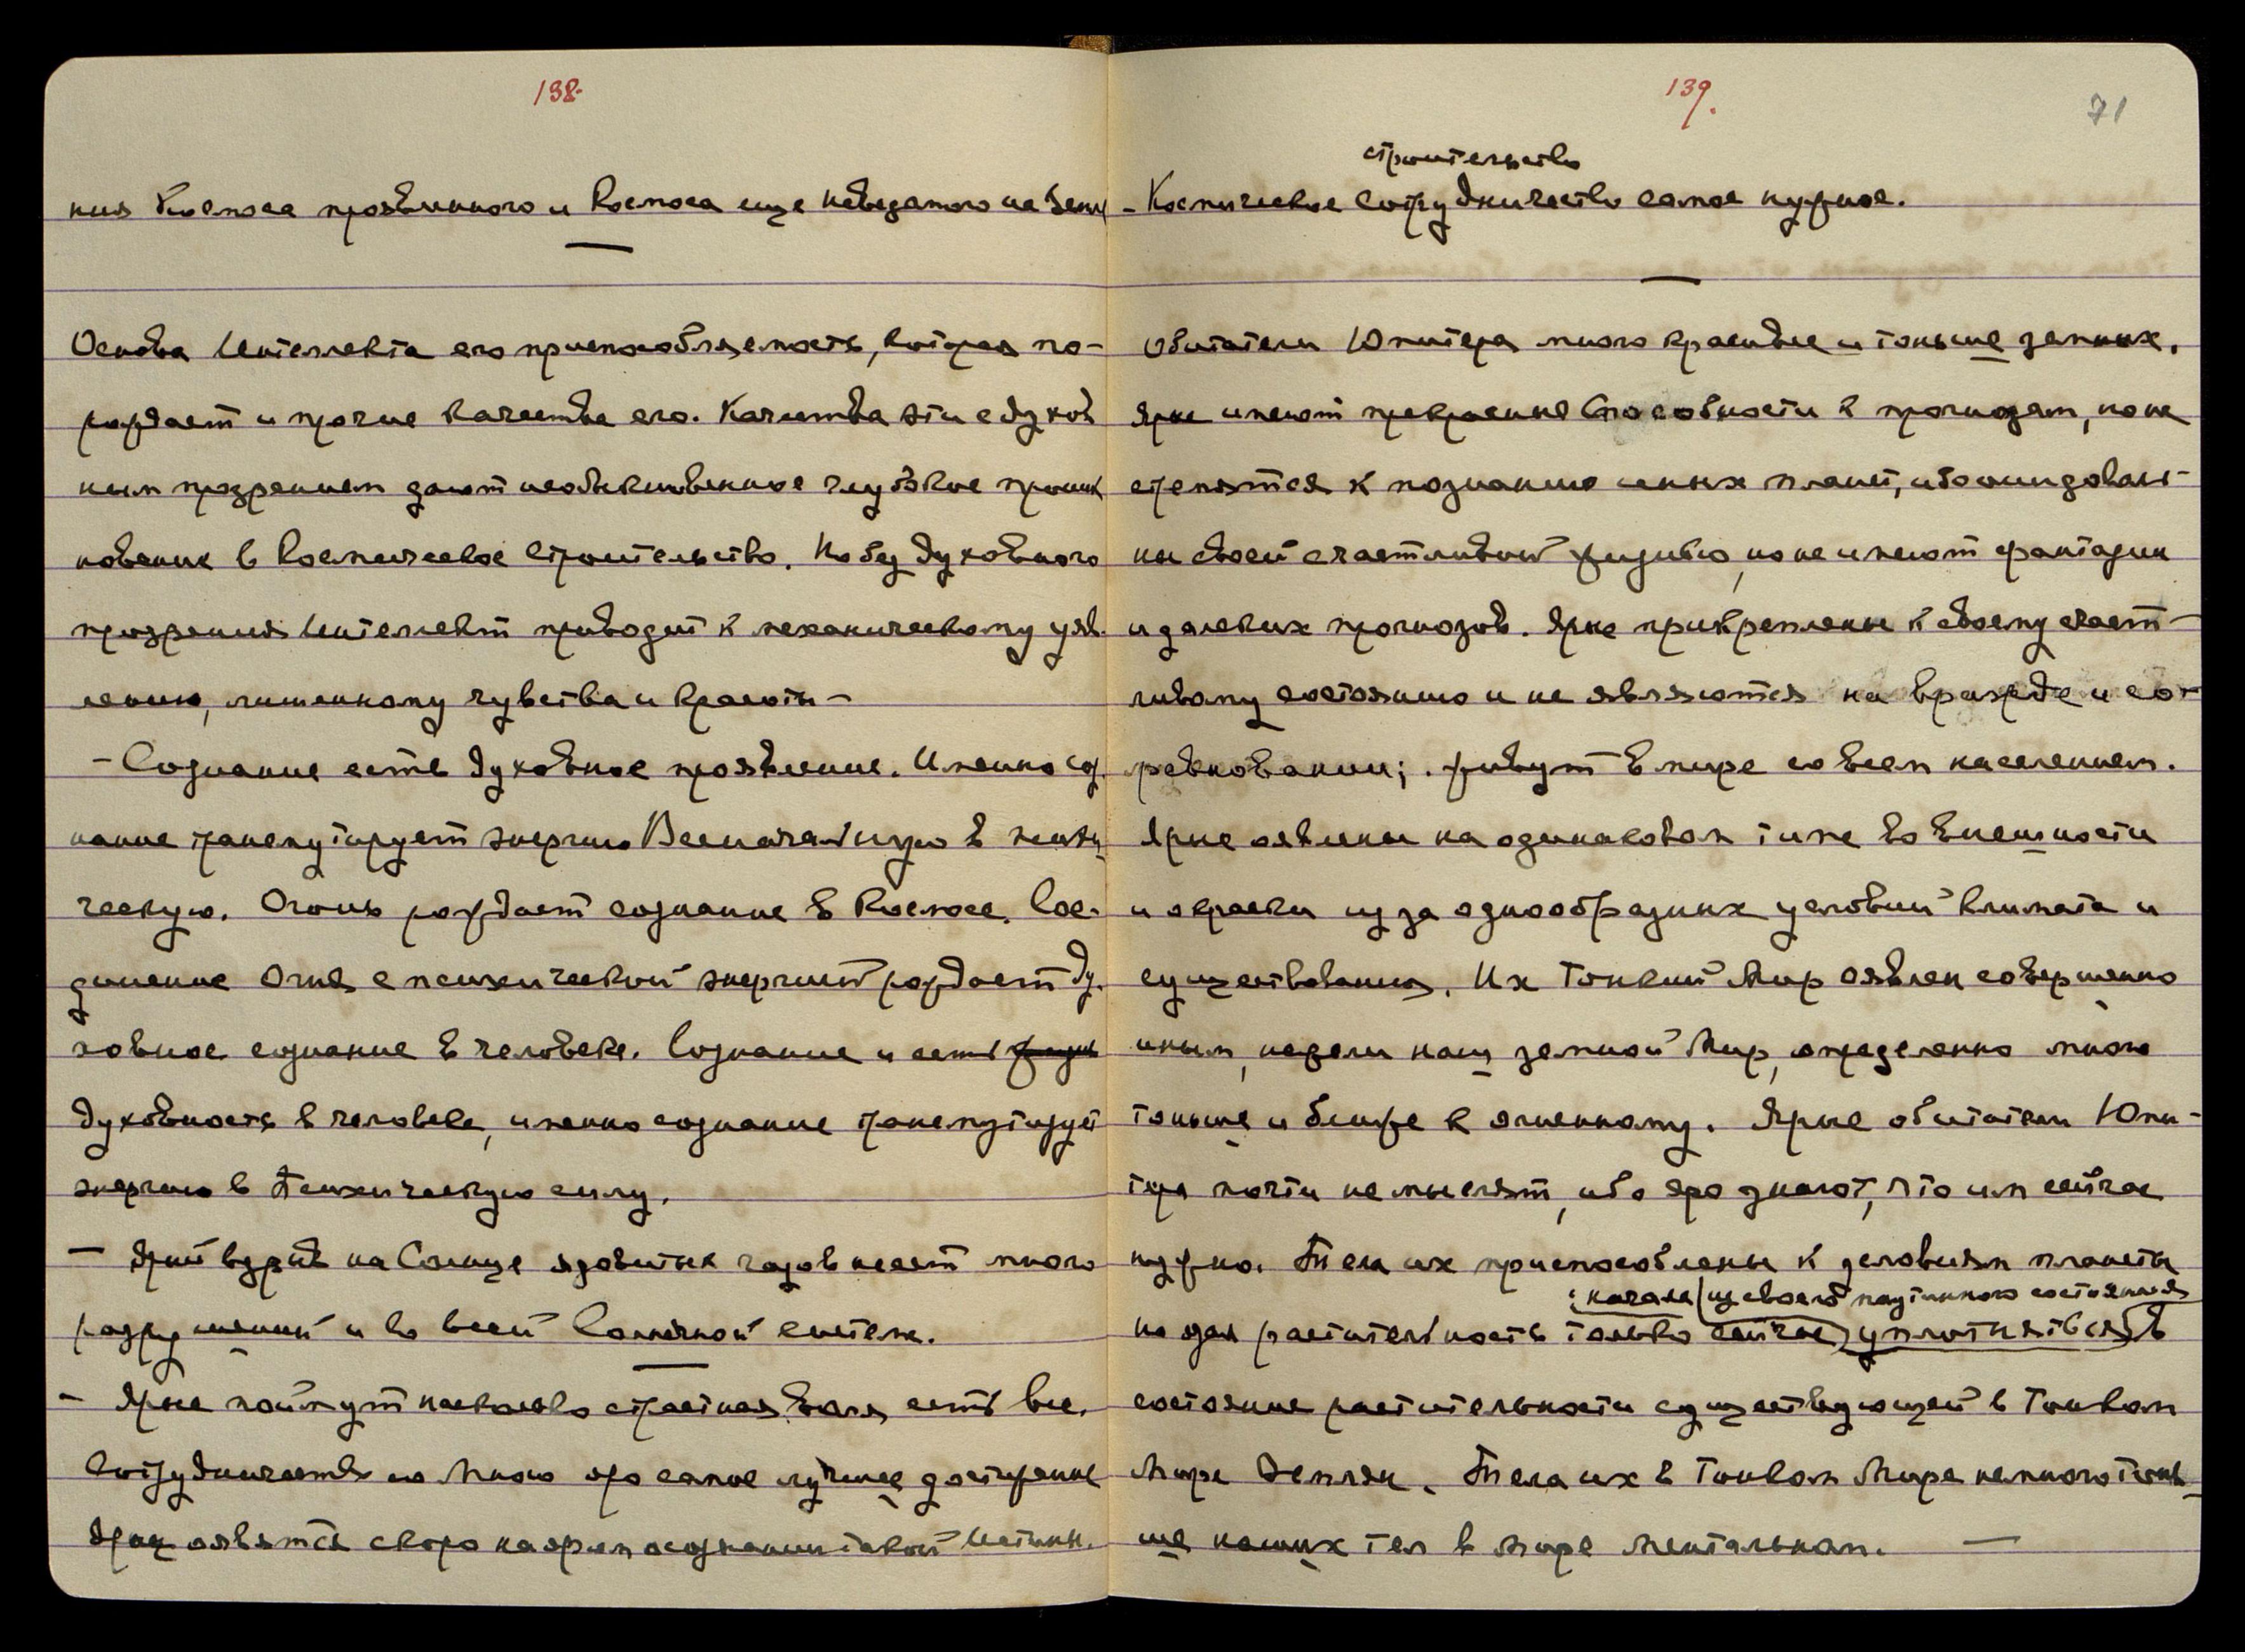 138.
ния Космоса проявленного и Космоса еще неведомого на Земле
Основа Интеллекта его приспособляемость, которая по-
рождает и прочие качества его. Качества эти с духов
ным прозрением дают необыкновенное глубокое проник
новение в Космическое строительство. Но без духовного
прозрения Интеллект приводит к механическому уяв.
лению, лишенному чувства и красоты –
– Сознание есть духовное проявление. Именно соз.
нание трансмутирует энергию Всеначальную в психи
ческую. Огонь рождает сознание в Космосе. Сое.
динение Огня с психической энергией рождает ду.
ховное сознание в человеке. Сознание и есть
духовность в человеке, именно сознание трансмутирует
энергию в Психическую силу.
– Ярый взрыв на Солнце ядовитых газов несет много
разрушений и во всей Солнечной системе.
– Ярые поймут насколько страстная воля есть все.
Сотрудничество со Мною яро самое лучшее достижение
Яры оявятся скоро на яром осознании такой Истины.
139.
71
строительство
– Космическое сотрудничество самое нужное.
Обитатели Юпитера много красивее и тоньше земных.
Ярые имеют прекрасные способности к прогнозам, но не
стремятся к познанию иных планет, ибо
ны своей счастливой жизнью, но не имеют фантазии
и далеких прогнозов. Ярые прикреплены к своему счаст–
ливому состоянию и не являются на вражде и со–
ревновании; живут в мире со всем населением.
Ярые оявлены на одинаковом типе во внешности
и окраски из за однообразных условий климата и
существования. Их Тонкий Мир оявлен совершенно
иным, нежели наш земной Мир, определенно много
тоньше и ближе к огненному. Ярые обитатели Юпи–
тера почти не мыслят, ибо яро знают, что им сейчас
нужно. Тела их приспособлены к условиям планеты
начала из своего паутинного состояния
но яро растительность только сейчас уплотняться в
состояние растительности существующей в Тонком
Мире Землян. Тела их в Тонком Мире немного тонь–
ше наших тел в Мире Ментальном. –